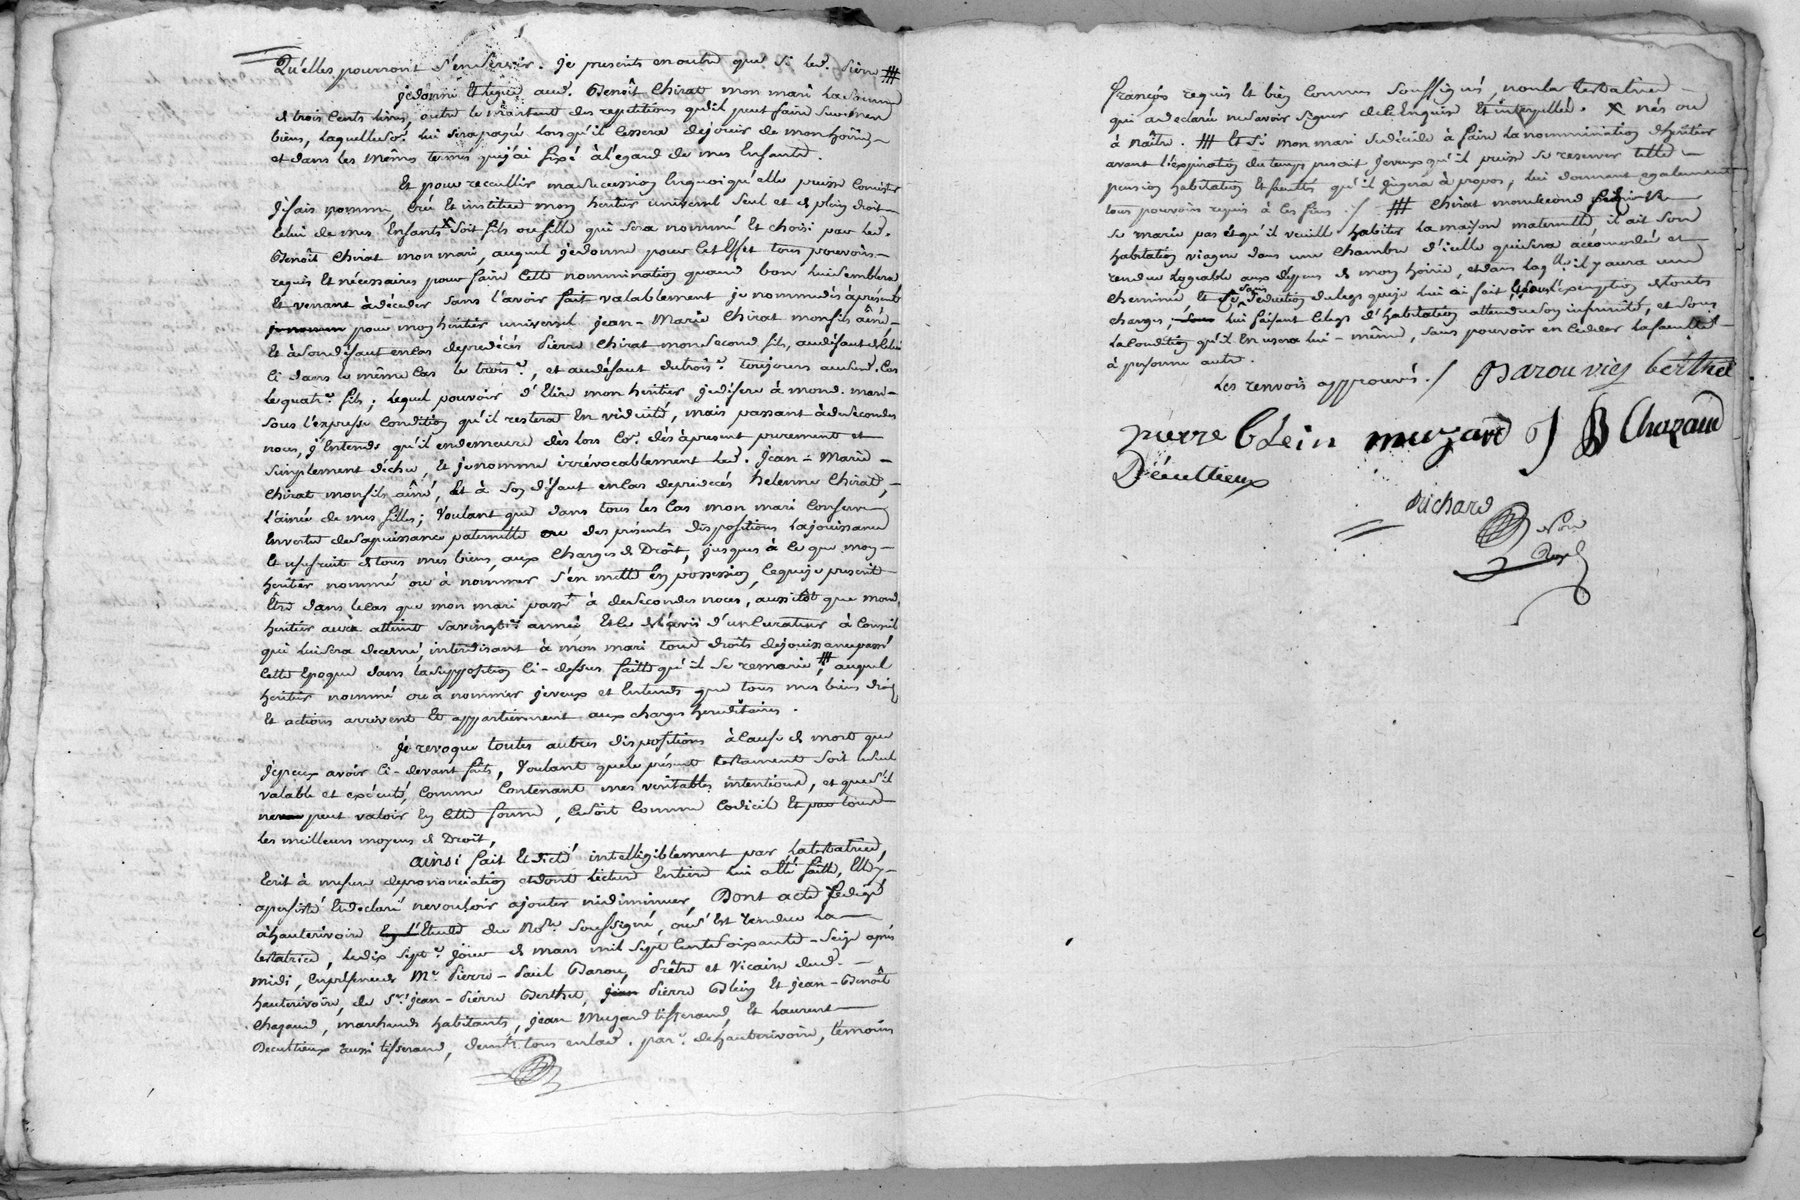 Qu'elles pourront s'en servir. Je prescris en outre que si led. Pierre #
je donne et legue aud. Benoît Chirat mon mari la somme
de trois cents livres, outre le montant des repetitions qu'il peut faire sur mes
biens, laquelle so.e lui sera payée lorsqu'il cessera de jouir de mon hoirie
et dans les mêmes termes que j'ai fixé à l'égard de mes Enfants.
Et pour recueillir ma succession En quoi qu'elle puisse consister
je fais nomme, créé et institue mon heritier universel seul et de plein droit
celui de mes Enfants x soit fils ou fille qui sera nommé et choisi par led.
Benoît Chirat mon mari, auquel je donne pour cet effet tous pouvoirs
requis et nécessaires pour faire cette nommination quand bon lui semblera
Et venant à décéder sans l'avoir fait valablement je nomme dès à présent
pour mon heritier universel Jean-Marie Chirat mon fils aîné,
Et à son défaut en cas de predécès Pierre Chirat mon second fils, au défaut de celui
ci dans le même cas le trois.e, et au défaut du trois.e toujours aud. cas
le quatr.e fils; lequel pouvoir d'Elire mon heritier je difere à mond. mari
sous l'expresse condition qu'il restera En viduité, mais passant à de secondes
noces, j'Entends qu'il en demeure dès lors co.e dès à present purement et
simplement déchu, et je nomme irrévocablement led. Jean-Marie
Chirat mon fils aîné, Et à son défaut en cas de predecès helenne Chirat,
l'ainée de mes filles; Voulant que dans tous les cas mon mari conserve
En vertu de sa puissance paternelle ou des présents dispositions la jouissance
Et usufruit de tous mes biens, aux charges de Droit, jusques à ce que mon
heritier nommé ou à nommer s'en mette en possession, ce que je prescrit
Être dans le cas que mon mari passe à de secondes noces, aussitôt que mond.
heritier aura atteint sa vingt.e année Et de l'avis d'un curateur à conseil
qui lui sera decerné, interdisant à mon mari tous droits de jouissance passé
cette Epoque dans la supposition ci-dessus faitte qu'il se remarie, # auquel
heritier nommé ou à nommer je veux et Entends que tous mes biens droits
Et actions arrivent Et appartiennent aux charges hereditaires.
Je revoque toutes autres dispositions à cause de mort que
je peux avoir ci-devant faits, Voulant que le présent testament soit le seul
valable et exécuté, comme contenant mes veritables intentions, et que s'il
ne peut valoir En cette forme, ce soit comme codicile Et par tous
les meilleurs moyens de Droit,
ainsi fait Et dicté intelligiblement par la testatrice,
Ecrit à mesure de prononciation et dont lecture Entiere lui a été faitte, Elle y
a persisté Et declaré ne vouloir ajouter ni diminuer, Dont acte redigé
à hauterivoire En l'Etude du No.re soussigné, où s'Est rendue la
testatrice, le dix sept.e jour de mars mil sept cents soixante-seize après
midi, En présence de M.r Pierre-Paul Barou, Prêtre et Vicaire dud.
hauterivoire, de S.r Jean-Pierre Berthet, Pierre Blein Et Jean-Benoît
Chazaud, marchands habitants, Jean Muzard tisserand, Et Laurent
Decultieux aussi tisserand, dem.t tous en lad. par.e de hauterivoire, témoins
françois requis et bien connus soussignés, non la testatrice
qui a declaré ne savoir signer de ce Enquise Et interpellée. x nés ou
à naître. # Et si mon mari se décide à faire la nommination d'heritier
avant l'expiration du temps prescrit je veux qu'il puisse se reserver telle
pension habitation Et facultés qu'il jugera à propos, lui donnant egalement
tous pouvoirs requis à ces fins ./ # Chirat mon second fils
se marie pas et qu'il veuille habiter la maison maternelle il ait son
habitation viagere dans une chambre d'icelle qui sera accomodée et
rendue logeable aux dépens de mon hoirie, et dans laq.lle il y aura une
cheminée Et ce sans deduction du legs que je lui ai fait exemption de toutes
charges, lui faisant ce legs d'habitation attendu son infirmité, et sous
la condition qu'il En usera lui-même, sans pouvoir en ceder la faculté
à personne autre.
Les renvois approuvés ./ Barou vic berthet
pierre blein muzard J B Chazaud
Décultieux
Richard
No.re